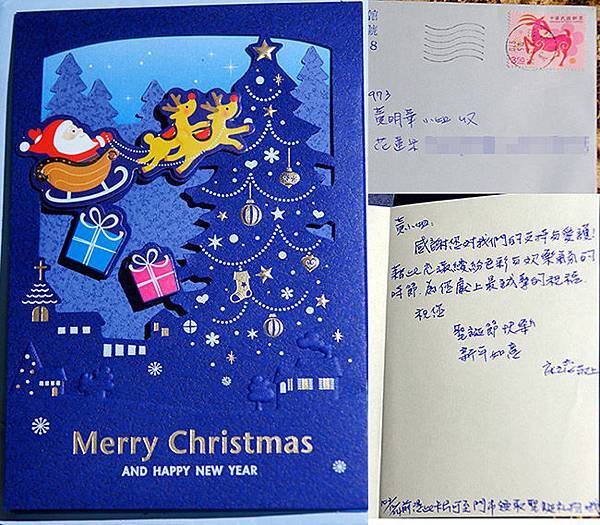 Merry Christmas
AND HAPPY NEW YEAR
館
號
8
中華民國郵票
350
973
黃明華 小姐 收
花蓮
黃小姐:
感謝您對我們的支持與愛護!
藉此充滿繽紛色彩與歡樂氣氛的
時節,為您獻上最誠摯的祝福.
祝您
聖誕節快樂
新年如意
前憑此卡片可至門市領取聖誕礼物哦